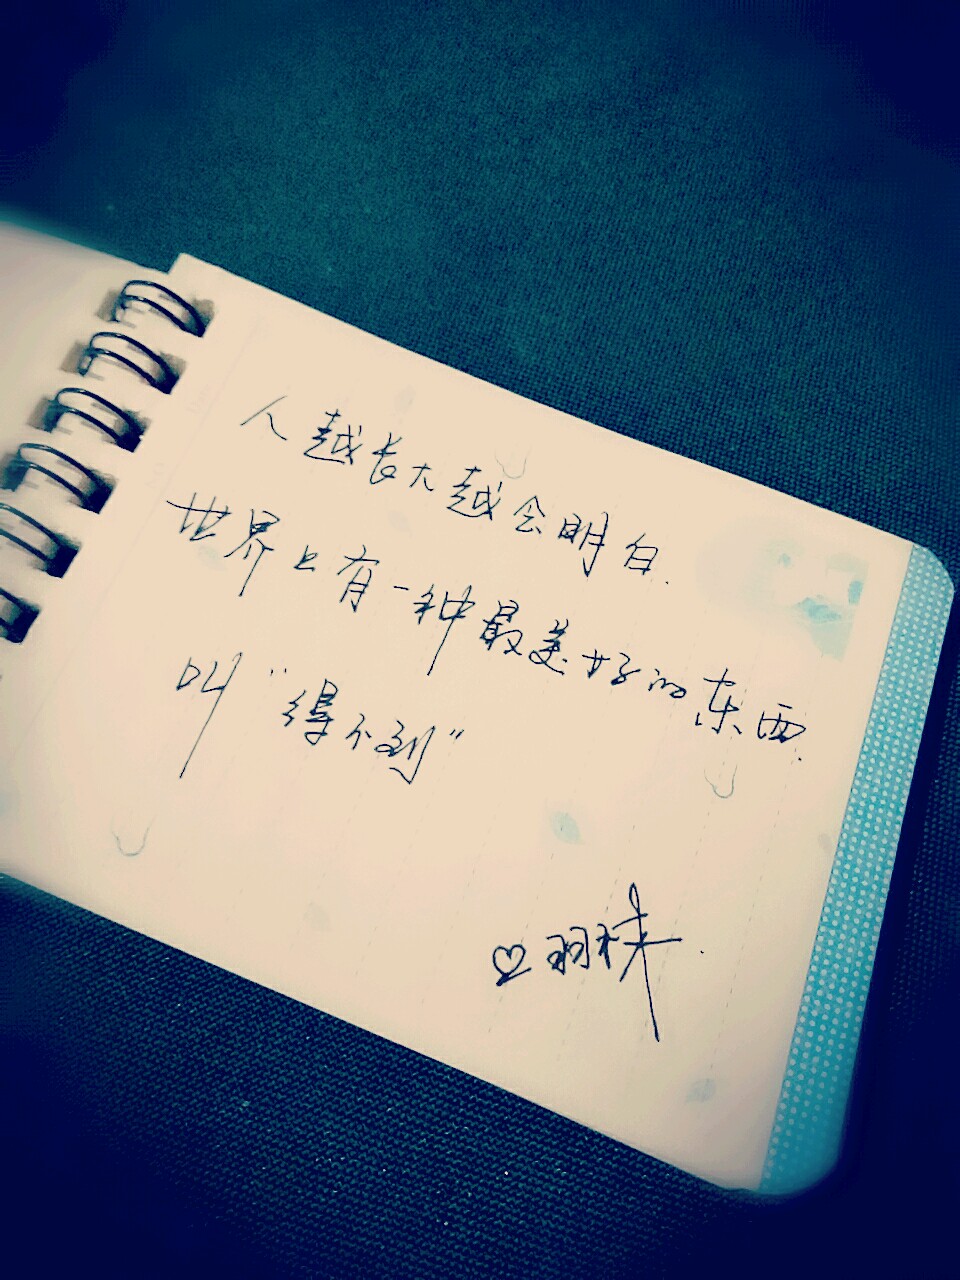 人越长大越会明白.
世界上有一种最美好的东西.
叫“得不到”